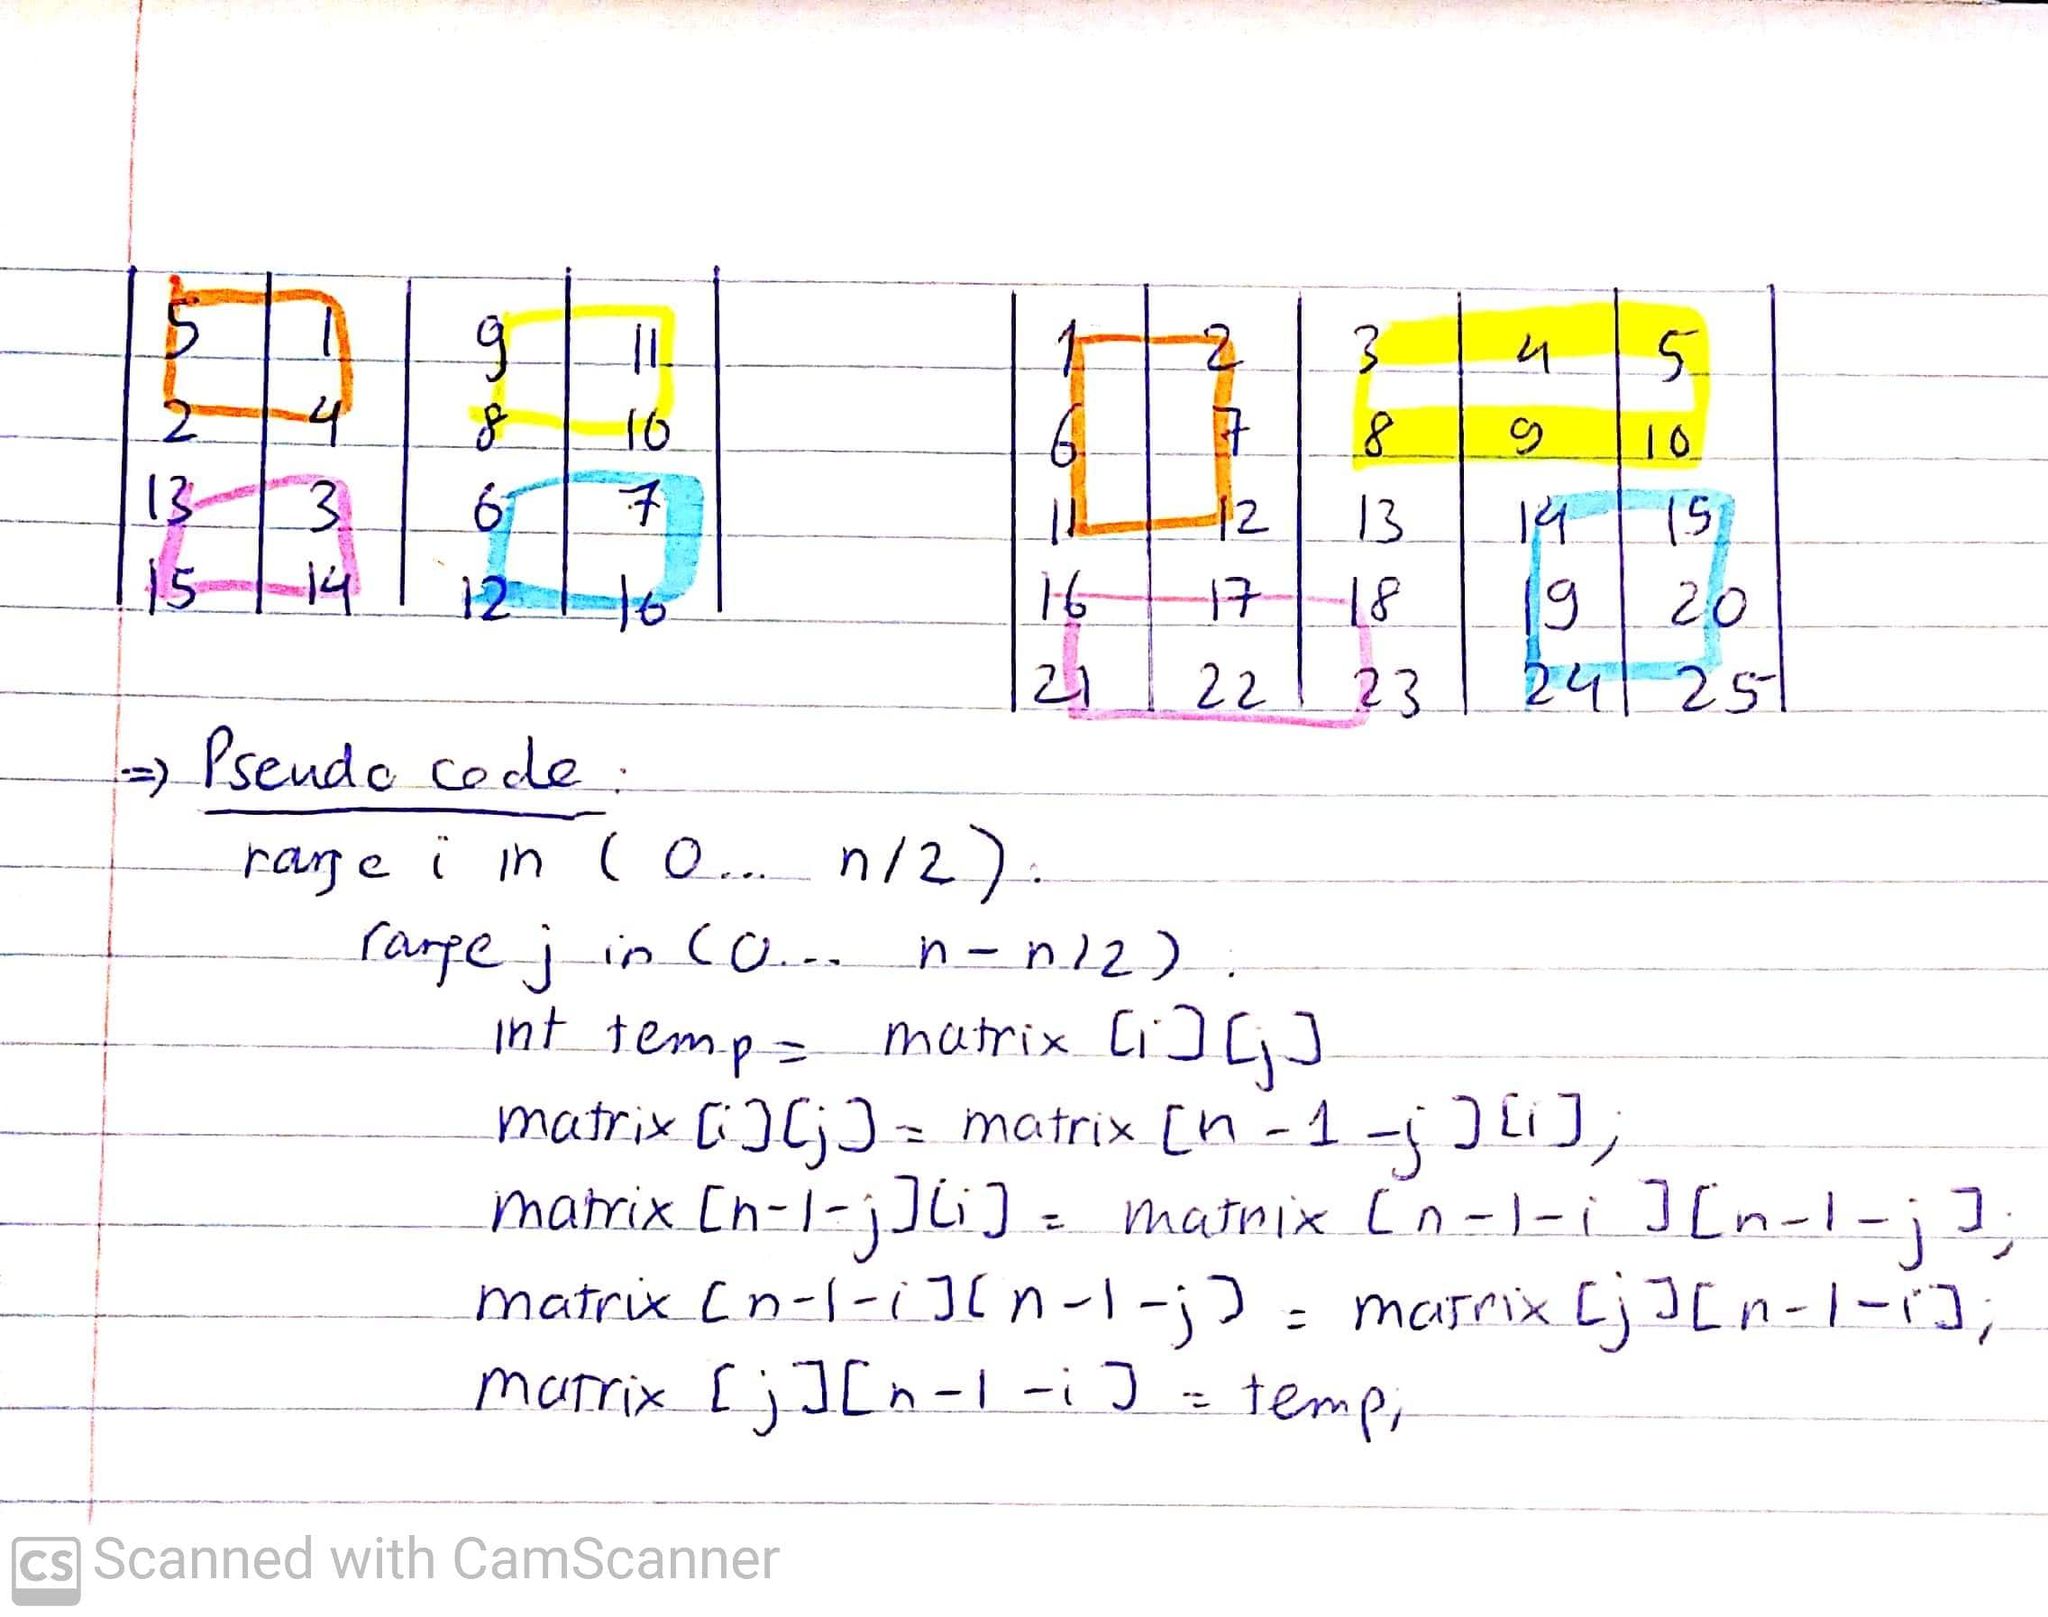 5 1 9 11
2 4 8 10
13 3 6 7
15 14 12 16
1 2 3 4 5
6 7 8 9 10
11 12 13 14 15
16 17 18 19 20
21 22 23 24 25
=> Pseudo code :
range i in ( 0... n/2 ) :
range j in ( 0... n - n/2 ) :
int temp = matrix [i] [j]
matrix [i] [j] = matrix [n - 1 - j ] [i] ;
matrix [n-1-j] [i] = matrix [n-1-i ] [n-1-j ] ;
matrix [n-1-i ] [n-1-j] = matrix [j] [n-1-i] ;
matrix [j] [n-1-i ] = temp;
CS Scanned with CamScanner